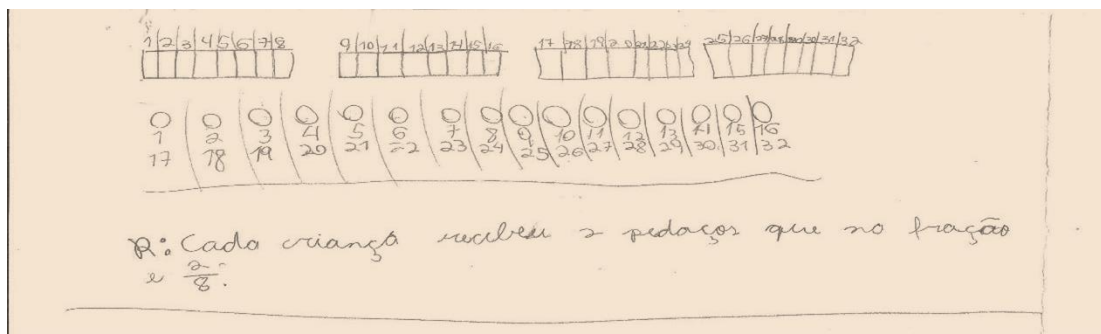 1 2 3 4 5 6 7 8 9 10 11 12 13 14 15 16 17 18 19 20 21 22 23 24 25 26 27 28 29 30 31 32
1 2 3 4 5 6 7 8 9 10 11 12 13 14 15 16
17 18 19 20 21 22 23 24 25 26 27 28 29 30 31 32
R: Cada criança recebeu 2 pedaços que no fração
e 2/8.